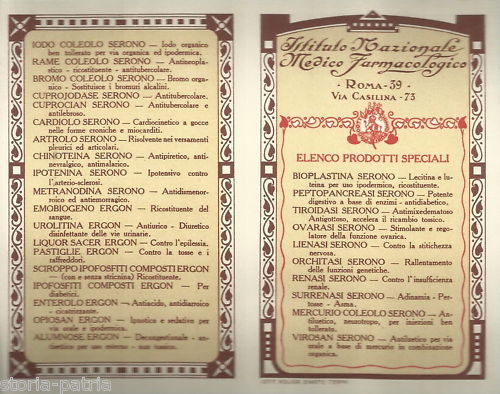 IODO COLEOLO SERONO — Iodo organico
ben tollerato per via organica ed ipodermica.
RAME COLEOLO SERONO — Antineopla-
stico - ricostituente - antitubercolare.
BROMO COLEOLO SERONO — Bromo orga-
nico - Sostituisce i bromuri alcalini.
CUPROJODASE SERONO — Antitubercolare.
CUPROCIAN SERONO — Antitubercolare e
antilebroso.
CARDIOLO SERONO — Cardiocinetico a gocce
nelle forme croniche e miocarditi.
ARTROLO SERONO — Risolvente nei versamenti
pleurici ed articolari.
CHINOTEINA SERONO — Antipiretico, anti-
nevralgico, antimalarico.
IPOTENINA SERONO — Ipotensivo contro
l'arterio-sclerosi.
METRANODINA SERONO — Antidismenor-
roico ed antiemorragico.
EMOBIOGENO ERGON — Ricostituente del
sangue.
UROLITINA ERGON — Antiurico - Diuretico
disinfettante delle vie urinarie.
LIQUOR SACER ERGON — Contro l'epilessia.
PASTIGLIE ERGON — Contro la tosse e i
raffreddori.
SCIROPPO IPOFOSFITI COMPOSTI ERGON
— (con e senza stricnina) Ricostituente.
IPOFOSFITI COMPOSTI ERGON — Per
diabetici.
ENTEROLO ERGON — Antiacido, antidiarroico
- cicatrizzante.
OPIOSAN ERGON — Ipnotico e sedativo per
via orale e ipodermica.
ALUMNOSE ERGON — Decongestionale - an-
tisettico per uso esterno - non tossico.
Istituto Nazionale
Medico Farmacologico
- ROMA-39 -
VIA CASILINA -73
ELENCO PRODOTTI SPECIALI
BIOPLASTINA SERONO — Lecitina e lu-
teina per uso ipodermico, ricostituente.
PEPTOPANCREASI SERONO — Potente
digestivo a base di enzimi - antidiabetico.
TIROIDASI SERONO — Antimixedematoso
Antigottoso, accelera il ricambio.
OVARASI SERONO — Stimolante e rego-
latore della funzione ovarica.
LIENASI SERONO — Contro la stitichezza
nervosa.
ORCHITASI SERONO — Rallentamento
delle funzioni genetiche.
RENASI SERONO — Contro l'insufficienza
renale.
SURRENASI SERONO — Adinamia - Per-
tosse - Asma.
MERCURIO COLEOLO SERONO — An-
tiluetico, neurotropo, per iniezioni ben
tollerato.
VIROSAN SERONO — Antiluetico per via
orale a base di mercurio in combinazione
organica.
storia-patria